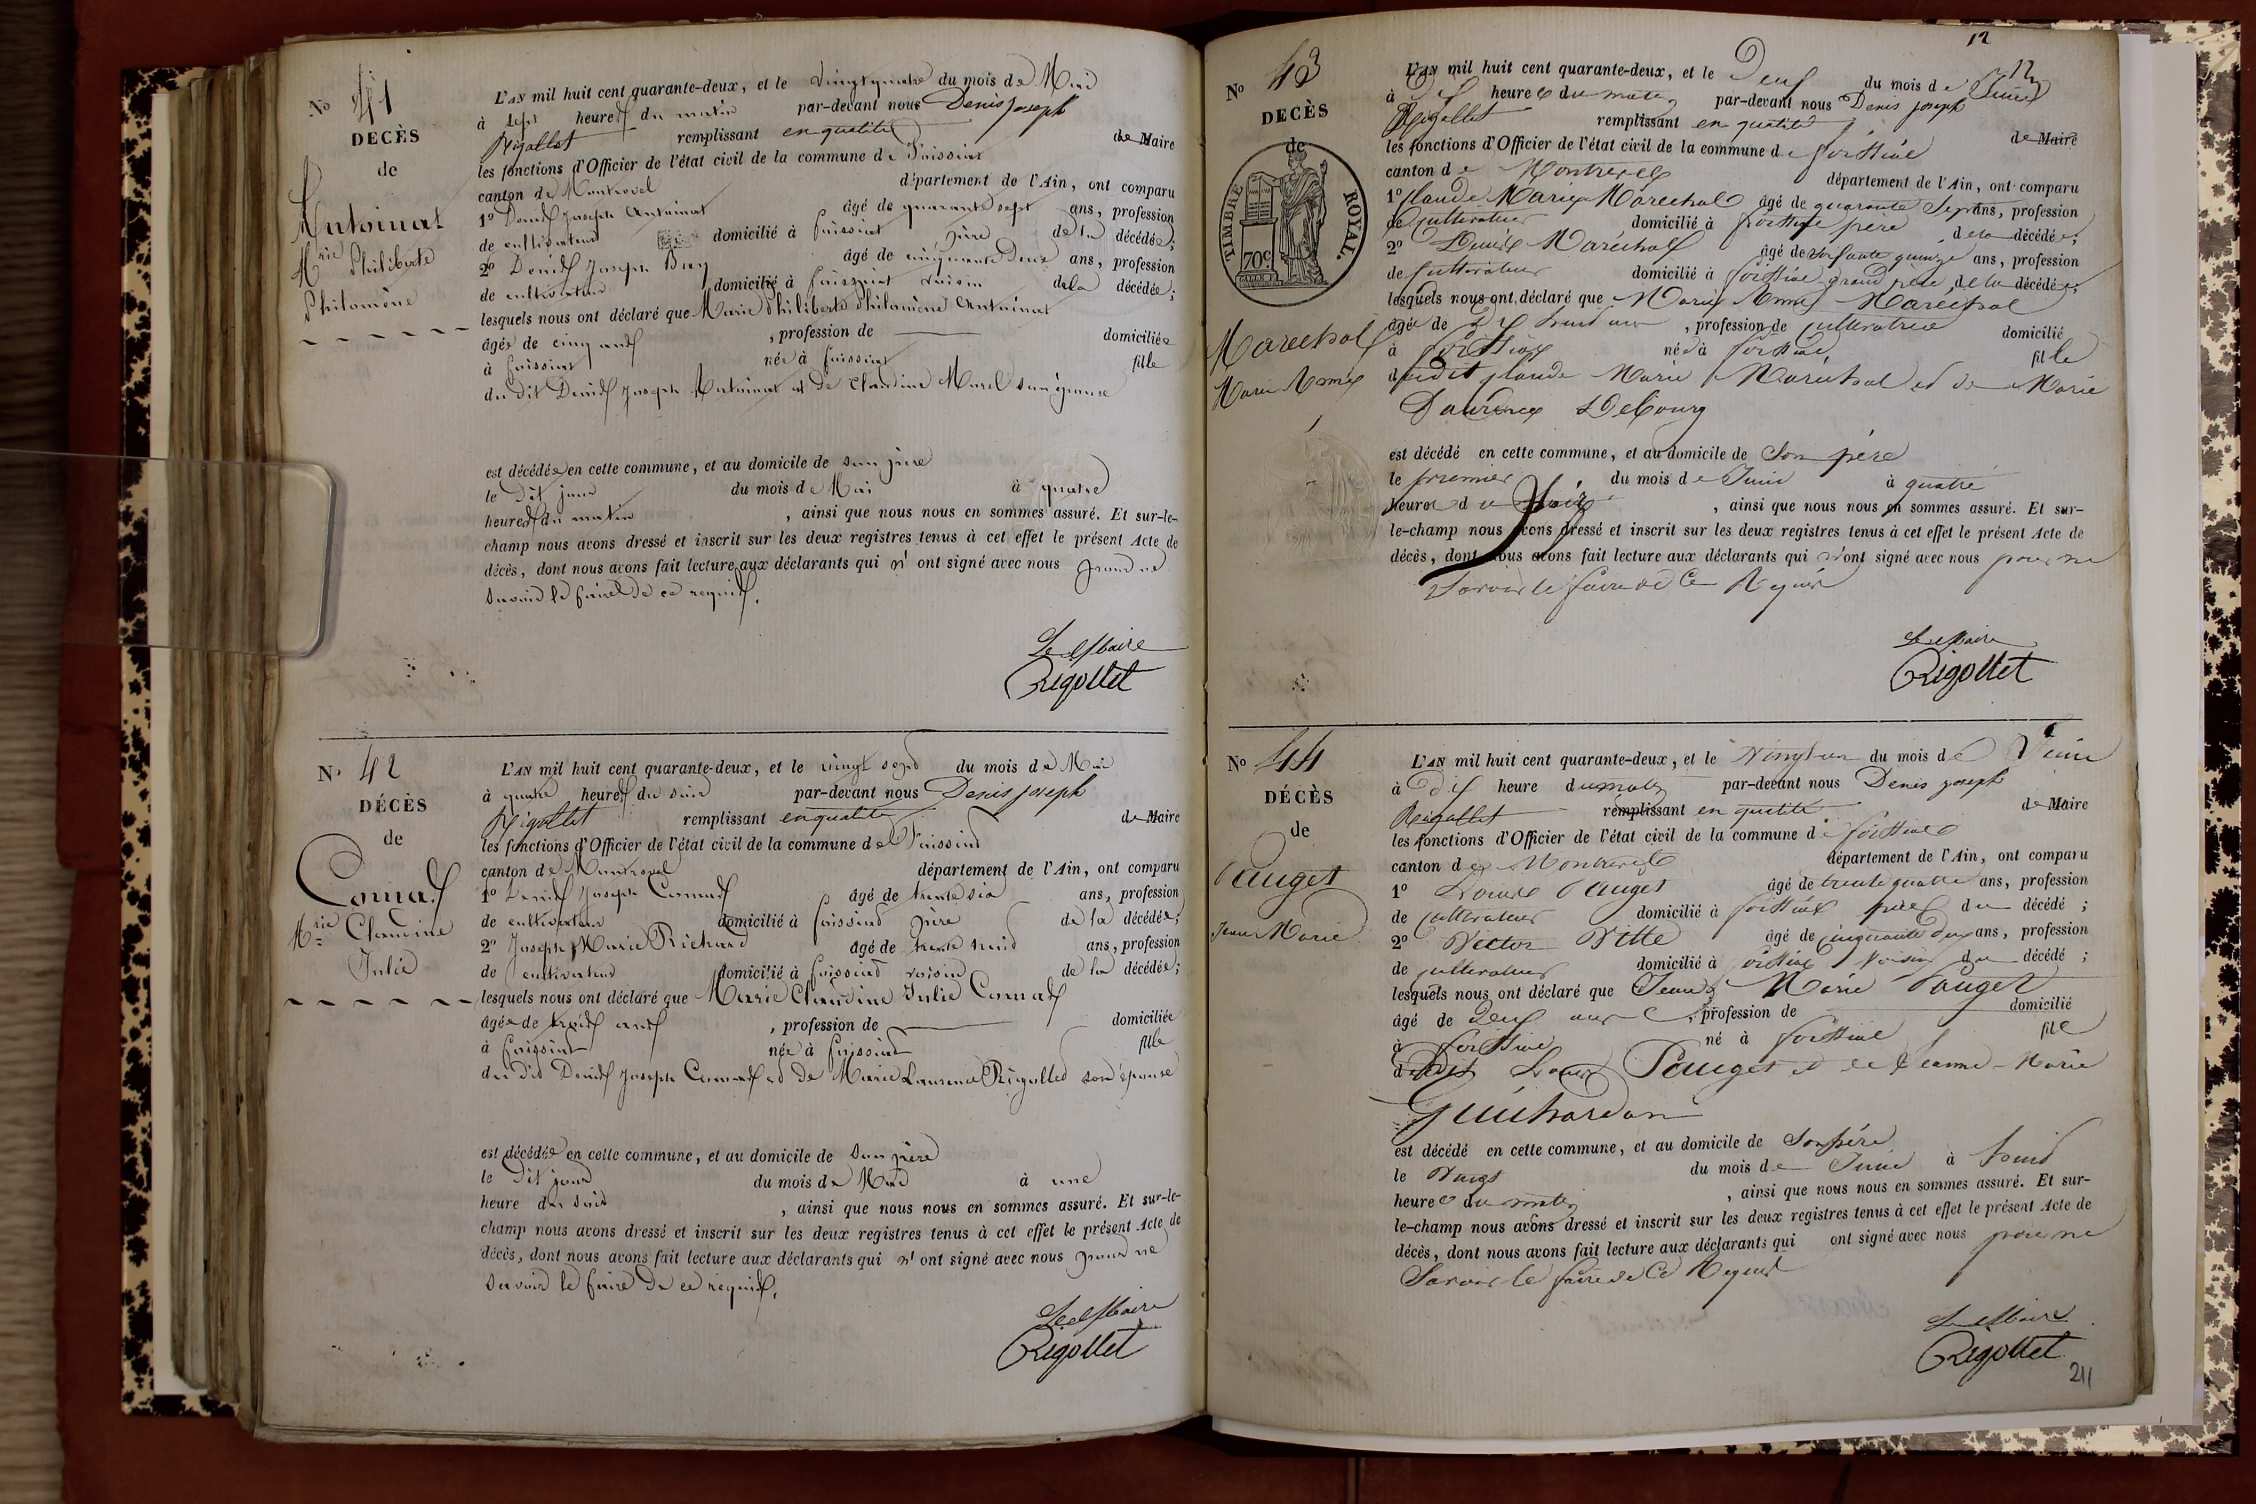 No 41
DECÈS
de
Antoinat
Mrie Philiberte
Philomène
L'AN mil huit cent quarante-deux, et le vingt quatre du mois de Mai
à sept heures du matin par-devant nous Denis joseph
Rigollet remplissant en qualité de Maire
les fonctions d'Officier de l'état civil de la commune de Foissiat
canton de Montrevel département de l'Ain, ont comparu
1o Denis Joseph Antoinat âgé de quarante sept ans, profession
de cultivateur domicilié à foissiat père de la décédée;
2o Denis Joseph Bray âgé de cinquante deux ans, profession
de cultivateur domicilié à foissiat voisin de la décédée;
lesquels nous ont déclaré que Marie Philiberte Philomène Antoinat
âgée de cinq ans, profession de domiciliée
à foissiat née à foissiat fille
du dit Denis Joseph Antoinat et de Claudine Morel son épouse
est décédée en cette commune, et au domicile de son père
le dit jour du mois de Mai à quatre
heures du matin, ainsi que nous nous en sommes assuré. Et sur-le-
champ nous avons dressé et inscrit sur les deux registres tenus à cet effet le présent Acte de
décès, dont nous avons fait lecture aux déclarants qui n'ont signé avec nous pour ne
savoir le faire de ce requis.
Le Maire
Rigollet
No 42
DÉCÈS
de
Comas
Mrie Claudine
Julie
L'AN mil huit cent quarante-deux, et le vingt sept du mois de Mai
à quatre heures du soir par-devant nous Denis joseph
Rigollet remplissant en qualité de Maire
les fonctions d'Officier de l'état civil de la commune de Foissiat
canton de Montrevel département de l'Ain, ont comparu
1o Denis Joseph Comas âgé de trente six ans, profession
de cultivateur domicilié à foissiat père de la décédée;
2o Joseph Marie Richard âgé de trente huit ans, profession
de cultivateur domicilié à foissiat voisin de la décédée;
lesquels nous ont déclaré que Marie Claudine Julie Comas
âgée de trois ans, profession de domiciliée
à foissiat née à foissiat fille
du dit Denis Joseph Comas et de Marie Laurence Rigollet son épouse
est décédée en cette commune, et au domicile de son père
le dit jour du mois de Mai à une
heure du soir, ainsi que nous nous en sommes assuré. Et sur-le-
champ nous avons dressé et inscrit sur les deux registres tenus à cet effet le présent Acte de
décès, dont nous avons fait lecture aux déclarants qui n'ont signé avec nous pour ne
savoir le faire de ce requis.
Le Maire
Rigollet
12
No 43
DECÈS
de
TIMBRE ROYAL.
70c
Marechal
Marie Aimée
L'AN mil huit cent quarante-deux, et le Deux du mois de Juin
à Dix heures du matin par-devant nous Denis joseph
Rigollet remplissant en qualité de Maire
les fonctions d'Officier de l'état civil de la commune de foissiat
canton de Montrevel département de l'Ain, ont comparu
1o Claude Marie Maréchal âgé de quarante Sept ans, profession
de Cultivateur domicilié à foissiat père de la décédée;
2o Denis Maréchal âgé de soixante quinze ans, profession
de Cultivateur domicilié à foissiat grand père de la décédée;
lesquels nous ont déclaré que Marie Aimée Maréchal
âgée de Dix huit ans, profession de Cultivatrice domicilié
à foissiat née à foissiat fille
dudit Claude Marie Maréchal et de Marie
Laurence Debourg
est décédé en cette commune, et au domicile de Son père
le premier du mois de Juin à quatre
heures du Soir, ainsi que nous nous en sommes assuré. Et sur-
le-champ nous avons dressé et inscrit sur les deux registres tenus à cet effet le présent Acte de
décès, dont nous avons fait lecture aux déclarants qui n'ont signé avec nous pour ne
Savoir le faire de Ce Requis
Le Maire
Rigollet
No 44
DÉCÈS
de
Pauget
Jean Marie
L'AN mil huit cent quarante-deux, et le Vingt un du mois de Juin
à Dix heure du matin par-devant nous Denis joseph
Rigollet remplissant en qualité de Maire
les fonctions d'Officier de l'état civil de la commune de foissiat
canton de Montrevel département de l'Ain, ont comparu
1o Louis Pauget âgé de trente quatre ans, profession
de Cultivateur domicilié à foissiat père du décédé;
2o Victor Vitte âgé de Cinquante deux ans, profession
de Cultivateur domicilié à foissiat Voisin du décédé;
lesquels nous ont déclaré que Jean Marie Pauget
âgé de Deux ans, profession de domicilié
à foissiat né à foissiat fils
dudit Louis Pauget et de Jeanne-Marie
Guichardon
est décédé en cette commune, et au domicile de Son père
le Vingt du mois de Juin à huit
heures du matin, ainsi que nous nous en sommes assuré. Et sur-
le-champ nous avons dressé et inscrit sur les deux registres tenus à cet effet le présent Acte de
décès, dont nous avons fait lecture aux déclarants qui ont signé avec nous pour ne
Savoir le faire de Ce Requis
Le Maire
Rigollet
211